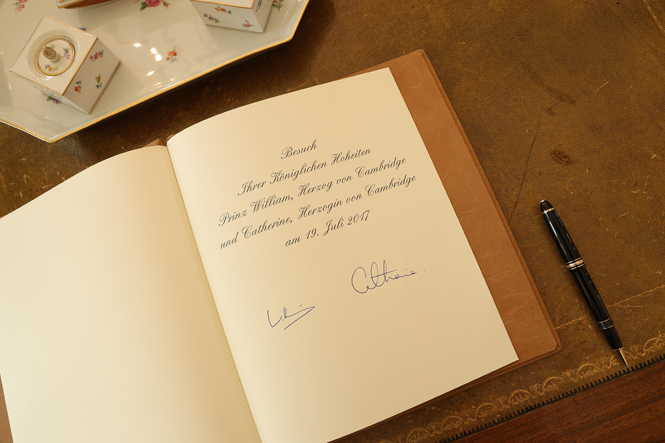 Besuch
Ihrer Königlichen Hoheiten
Prinz William, Herzog von Cambridge
und Catherine, Herzogin von Cambridge
am 19. Juli 2017
Catherine